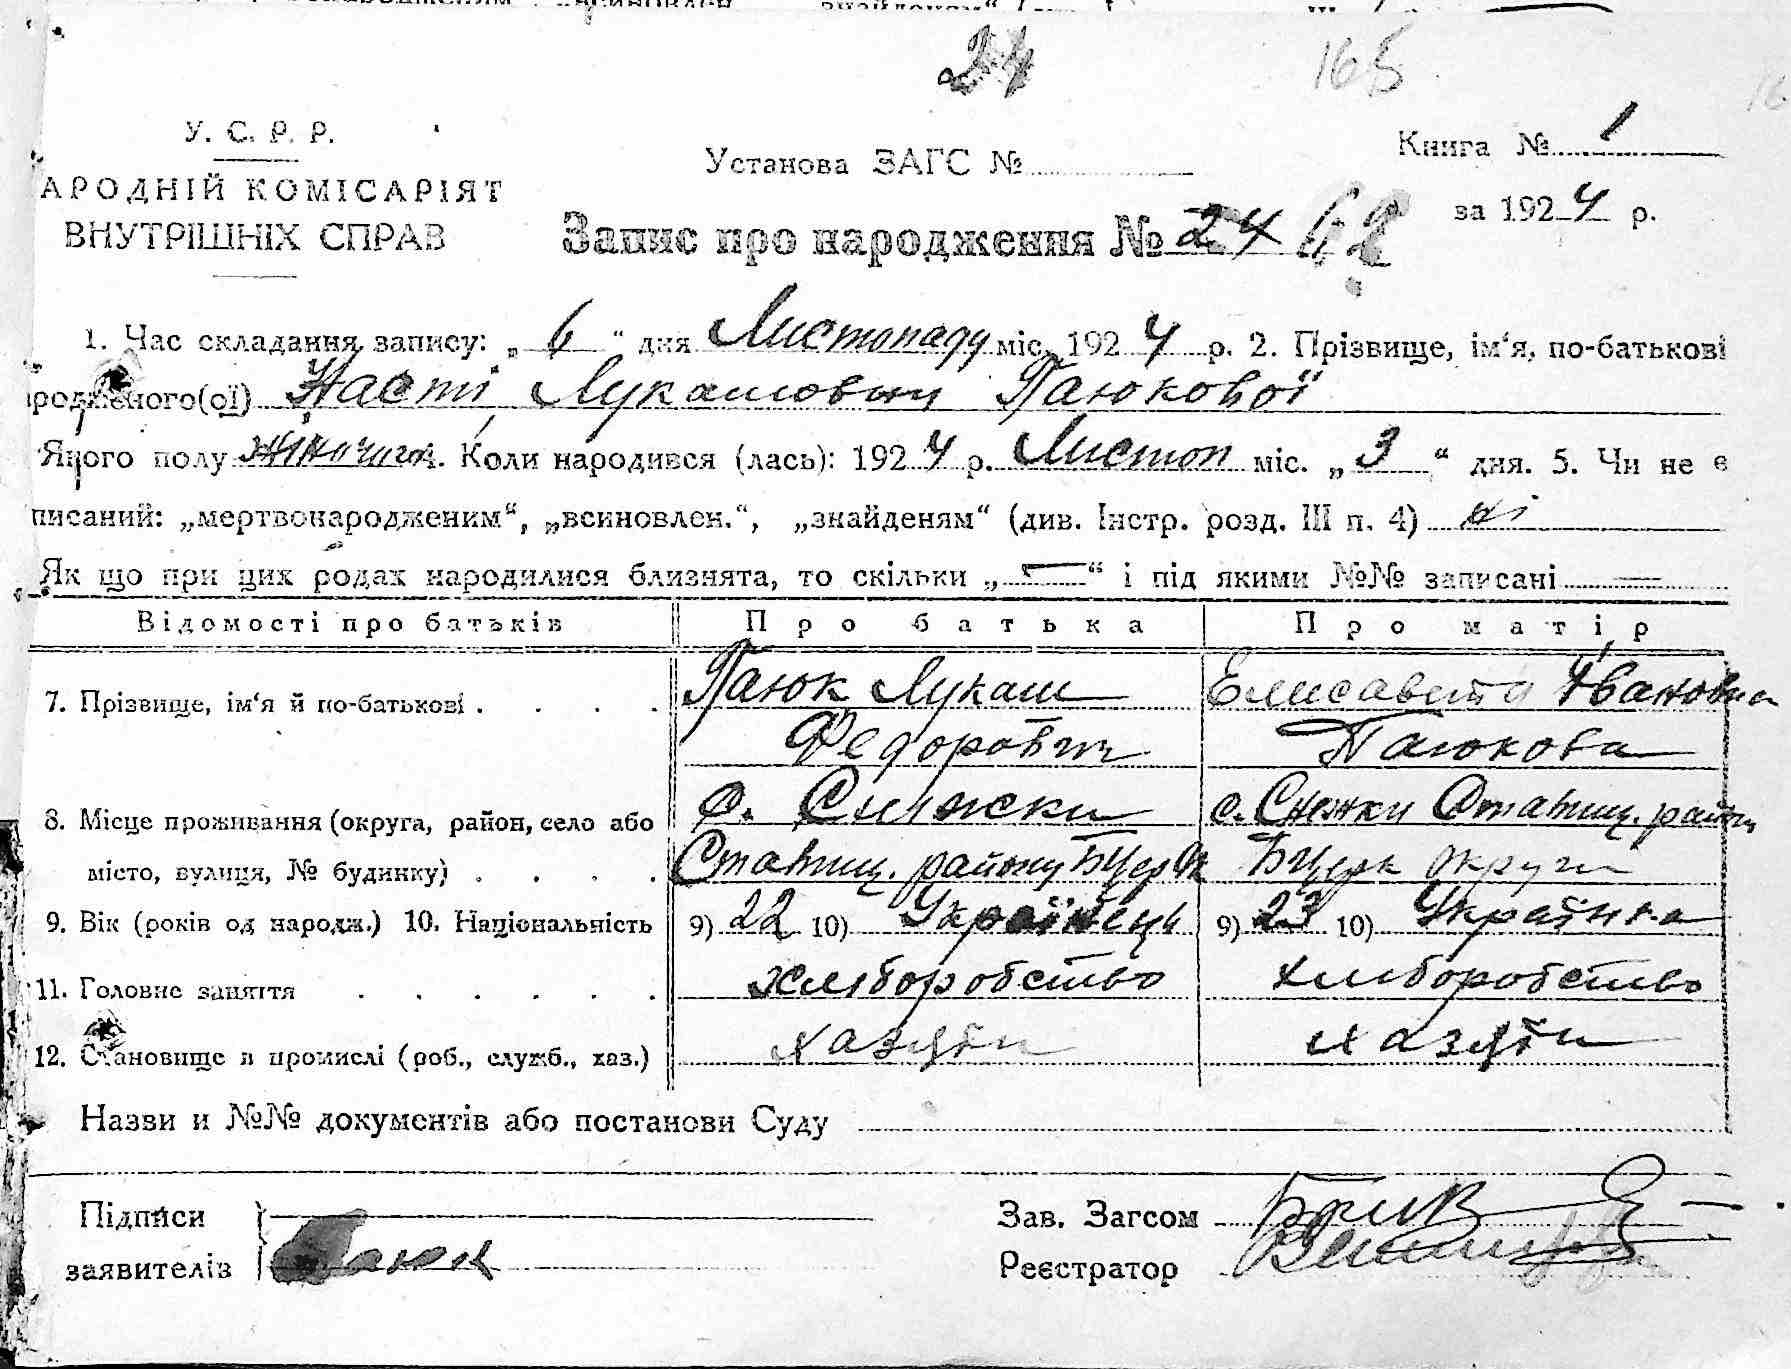 24 165
У. С. Р. Р.
АРОДНІЙ КОМІСАРІЯТ
ВНУТРІШНІХ СПРАВ
Установа ЗАГС №
Книга № 1
за 1924 р.
Запис про народження № 24 62
1. Час складання запису: „ 6 “ дня Листопаду міс. 1924 р. 2. Прізвище, ім‘я, по-батькові
родженого(ої) Насті Лукашовни Паюкової
Якого полу жіночого. Коли народився (лась): 1924 р. Листоп міс. „ 3 “ дня. 5. Чи не є
писаний: „мертвонародженим“, „всиновлен.“, „знайденям“ (див. Інстр. розд. III п. 4) ні
Як що при цих родах народилися близнята, то скільки „ — “ і під якими №№ записані —
Відомості про батьків Про батька Про матір
7. Прізвище, ім‘я й по-батькові . . . . Паюк Лукаш Елисавета Ивановна
Федорович Паюкова
8. Місце проживання (округа, район, село або с. Сніжки с. Снежки Ставищ. район
місто, вулиця, № будинку) . . . . Ставищ. району БЦерк БЦерк округи
9. Вік (років од народж.) 10. Національність 9) 22 10) Українець 9) 23 10) Українка
11. Головне заняття . . . . . . хліборобство хліборобство
12. Становище в промислі (роб., служб., хаз.) хазяїн хазяїн
Назви и №№ документів або постанови Суду
Підписи
заявителів Паюк
Зав. Загсом
Реєстратор